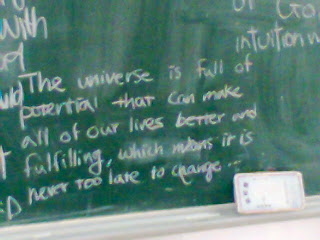 with
of God
intuition
The universe is full of
potential that can make
all of our lives better and
fulfilling, which means it is
never too late to change...